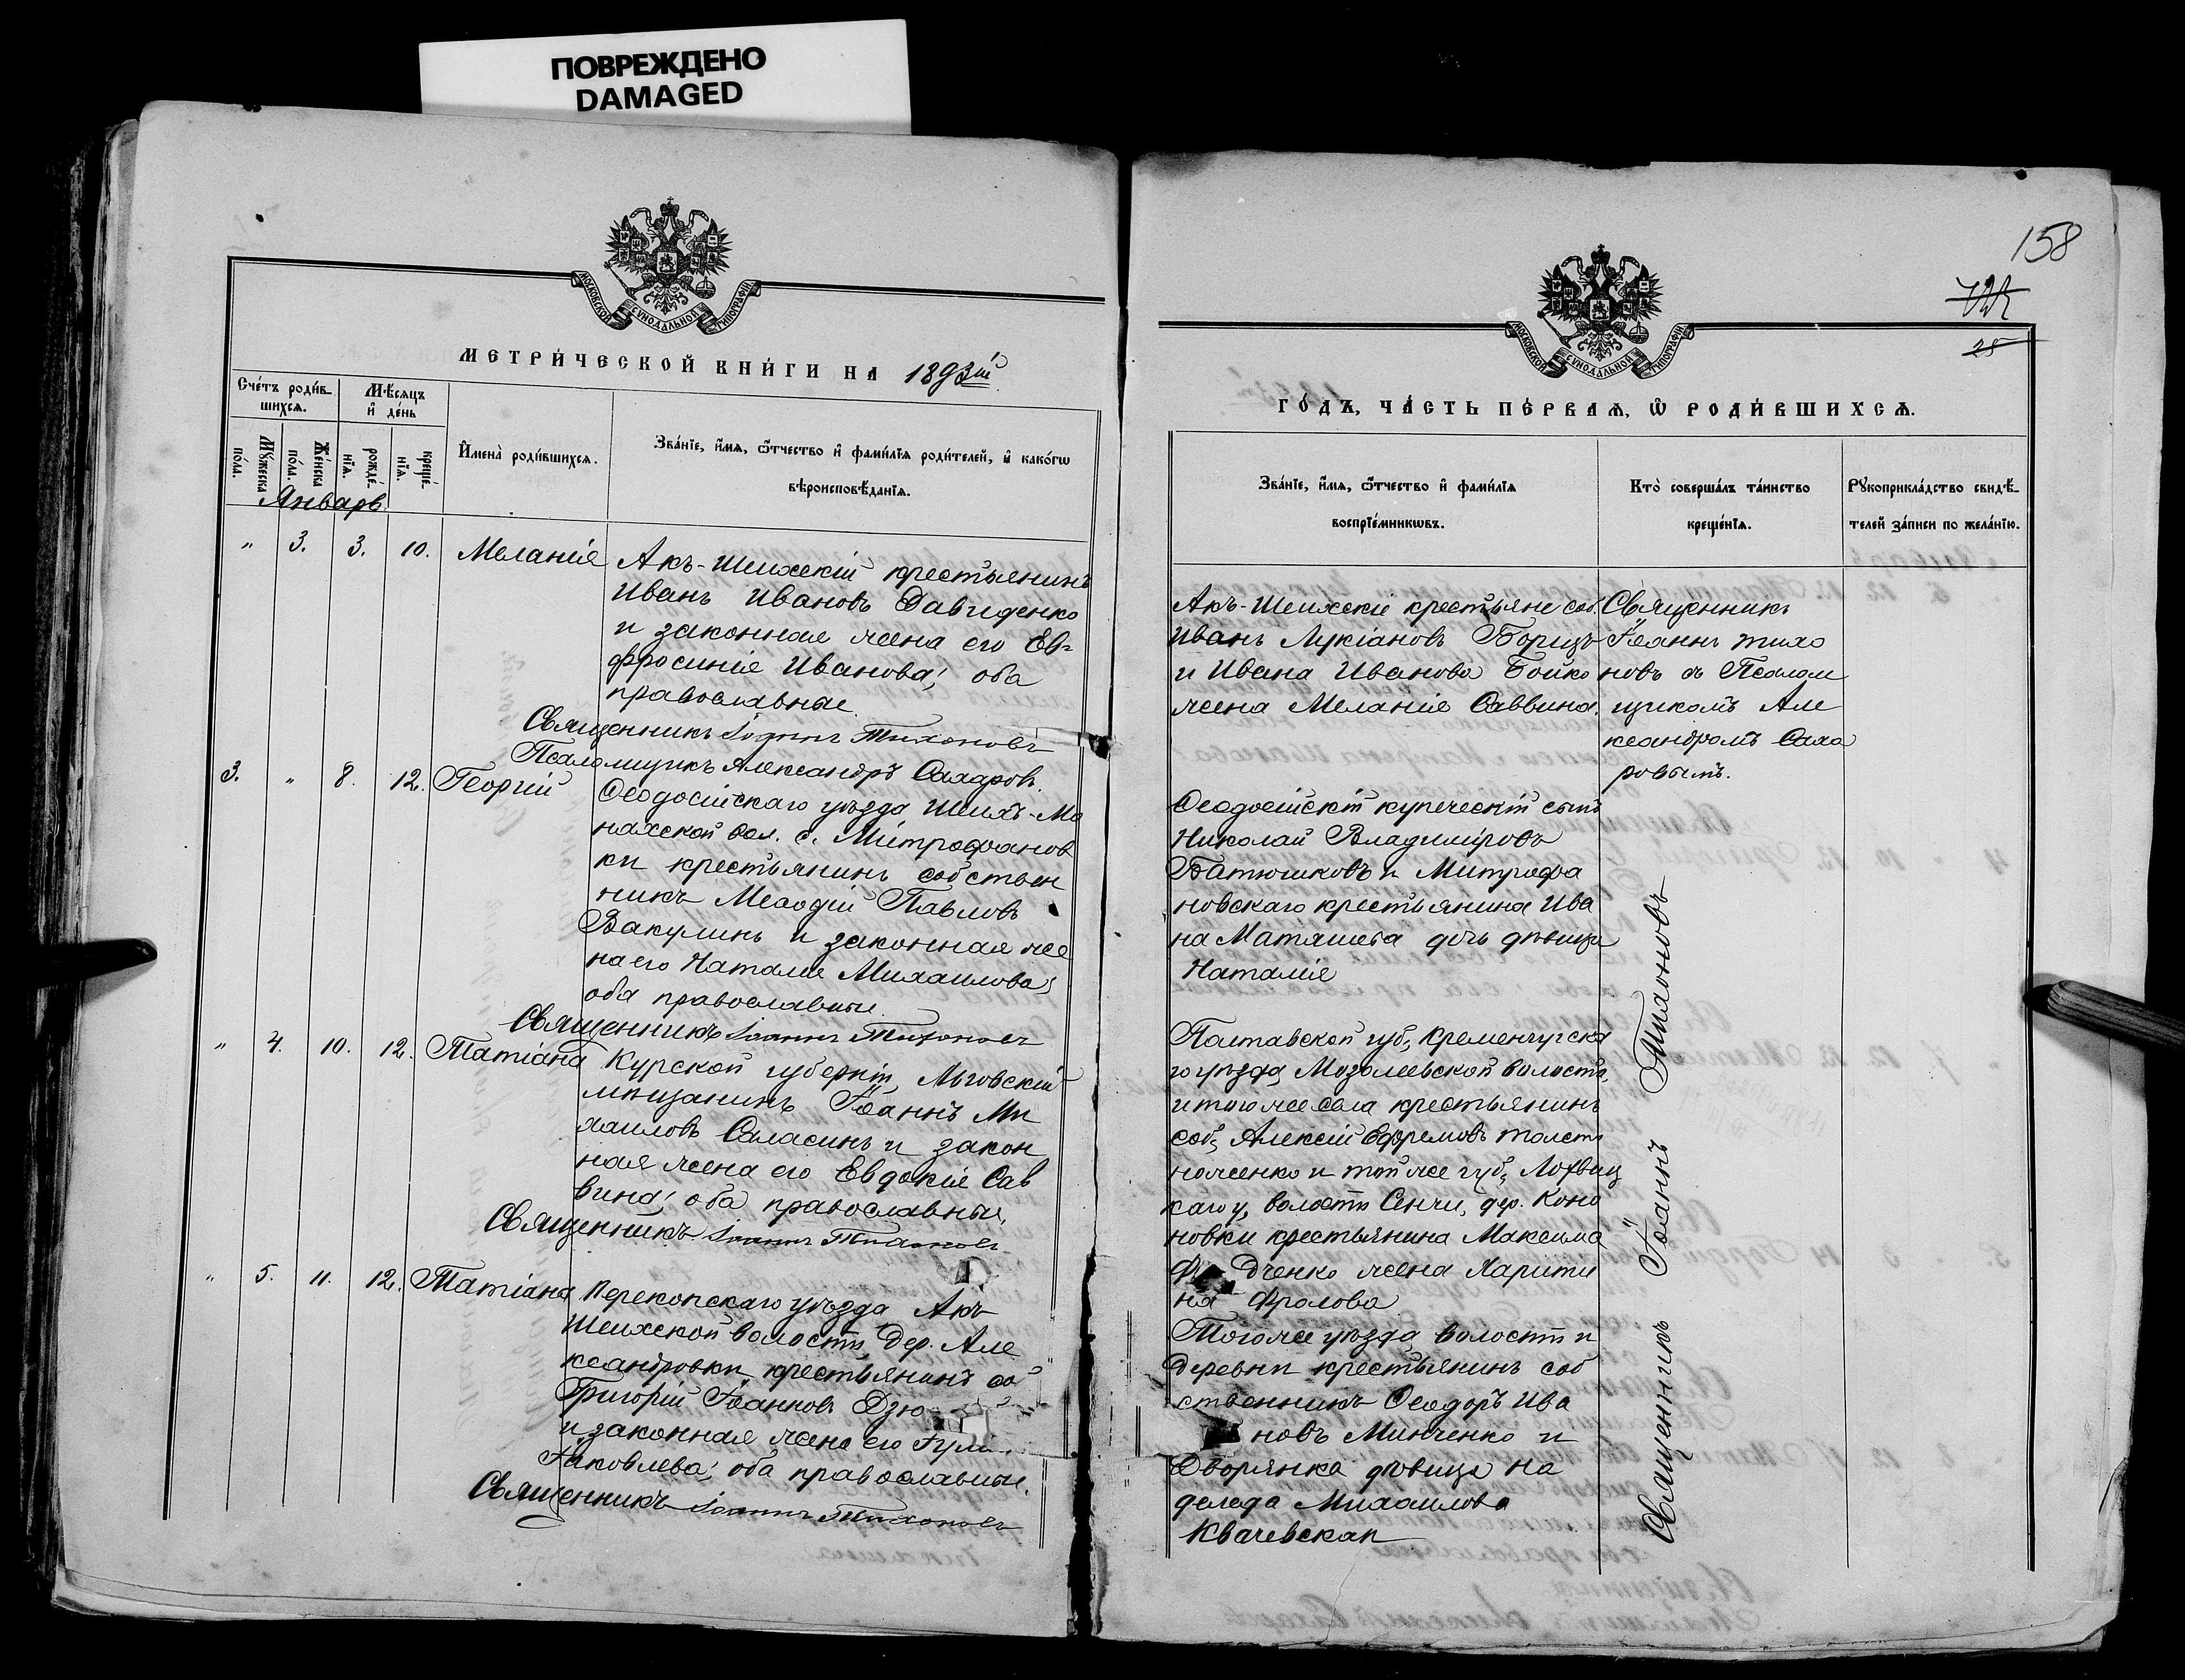 ПОВРЕЖДЕНО
DAMAGED
МОСКОВСКОЙ СѴНОДАЛЬНОЙ ТИПОГРАФІИ
МЕТРИ́ЧЕСКОЙ КНИ́ГИ НА 1893ій
Сче́тъ роди́в-
шихсѧ.
Мѣ́сѧцъ
и҆ де́нь
Мꙋ́жеска
по́ла.
Же́нска
по́ла.
рожде́-
нїѧ.
креще́-
нїѧ.
И҆мена̀ роди́вшихсѧ.
Зва́нїе, и҆́мѧ, ѻ҆́тчество и҆ фами́лїѧ роди́телей, и҆ како́гѡ
вѣроисповѣ́данїѧ.
Январь
" 3. 3. 10. Меланія Акъ-Шеихскій крестьянинъ
Иванъ Ивановъ Давиденко
и законная жена его Ев-
фросинія Иванова; оба
православные.
Священникъ Іоаннъ Тихоновъ
Псаломщикъ Александръ Сахаровъ.
3. " 8. 12. Георгій Ѳеодосійскаго уѣзда Шеихъ-Мо
нахской вол. с. Митрофанов
ки крестьянинъ собствен
никъ Меѳодій Павловъ
Вакулинъ и законная же
на его Наталія Михаилова;
оба православные.
Священникъ Іоаннъ Тихоновъ
" 4. 10. 12. Татіана Курской губерніи, Льговскій
мѣщанинъ Іоаннъ Ми
хаиловъ Саласинъ и закон
ная жена его Евдокія Сав
вина; оба православные.
Священникъ Іоаннъ Тихоновъ
" 5. 11. 12. Татіана Перекопскаго уѣзда, Акъ
Шеихской волости, дер. Але
ксандровки, крестьянинъ соб
Григорій Іоанновъ Дзю
и законная жена его Іулі
Іаковлева; оба православные.
Священникъ Іоаннъ Тихоновъ
158
25
МОСКОВСКОЙ СѴНОДАЛЬНОЙ ТИПОГРАФІИ
ГО́ДЪ, ЧА́СТЬ ПЕ́РВАѦ, Ѡ҆ РОДИ́ВШИХСѦ.
Зва́нїе, и҆́мѧ, ѻ҆́тчество и҆ фами́лїѧ
воспрїе́мникѡвъ.
Кто̀ соверша́лъ та́инство
креще́нїѧ.
Рꙋкоприкла́дство свидѣ́-
телей за́писи по жела́нїю.
Акъ-Шеихскіе крестьяне соб.
Иванъ Лукіановъ Борищъ
и Ивана Иванова Бойко
жена Меланія Саввина.
Священникъ
Іоаннъ Тихо
новъ съ Псалом
щикомъ Але
ксандромъ Саха
ровымъ.
Ѳеодосійскій купеческій сынъ
Николай Владиміровъ
Батюшковъ и Митрофа
новскаго крестьянина Ива
на Матяшева дочь дѣвица
Наталія
Полтавской губ., Кременчугска
го уѣзда, Мозолеевской волости,
и того же села крестьянинъ
соб., Алексій Ефремовъ Толсто
ноженко и той же губ., Лохвиц
каго у, волости Сенчи, дер. Коно
новки крестьянина Максима
дченко жена Харити
на Фролова
Того же уѣзда, волости и
деревни крестьянинъ соб
ственникъ Ѳеодоръ Ива
новъ Минченко и
Дворянка дѣвица На
дежда Михаилова
Квачевская
Священникъ Іоаннъ Тихоновъ